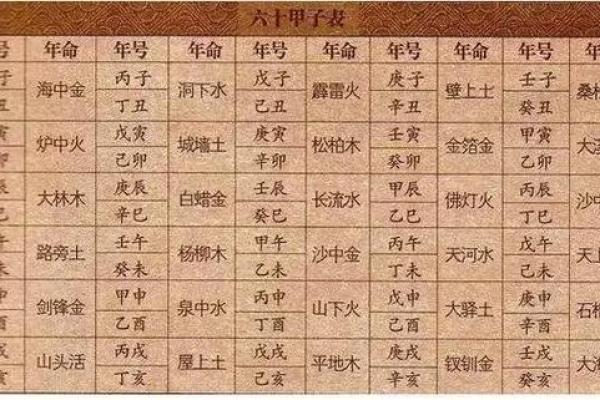 六十甲子表
号 年命 年号 年命 年号 年命 年号 年命 年号 年
丙子 戊子 庚子 壬子
海中金 洞下水 霹雷火 壁上土 桑
丁丑 己丑 辛丑 癸丑
戊寅 庚寅 壬寅 甲寅
炉中火 城墙土 松柏木 金箔金 大
己卯 辛卯 癸卯 乙卯
庚辰 壬辰 甲辰 丙辰
大林木 白蜡金 长流水 佛灯火 沙中
辛巳 癸巳 乙巳 丁巳
壬午 甲午 丙午 戊午
路旁土 杨柳木 沙中金 天河水 天上
癸未 乙未 丁未 己未
甲申 丙申 戊申 庚申
剑锋金 泉中水 山下火 大驿土 石
乙酉 丁酉 己酉 辛酉
丙戌 戊戌 庚戌 壬戌
山头活 屋上土 平地木 钗钏金 大
丁亥 己亥 辛亥 癸亥